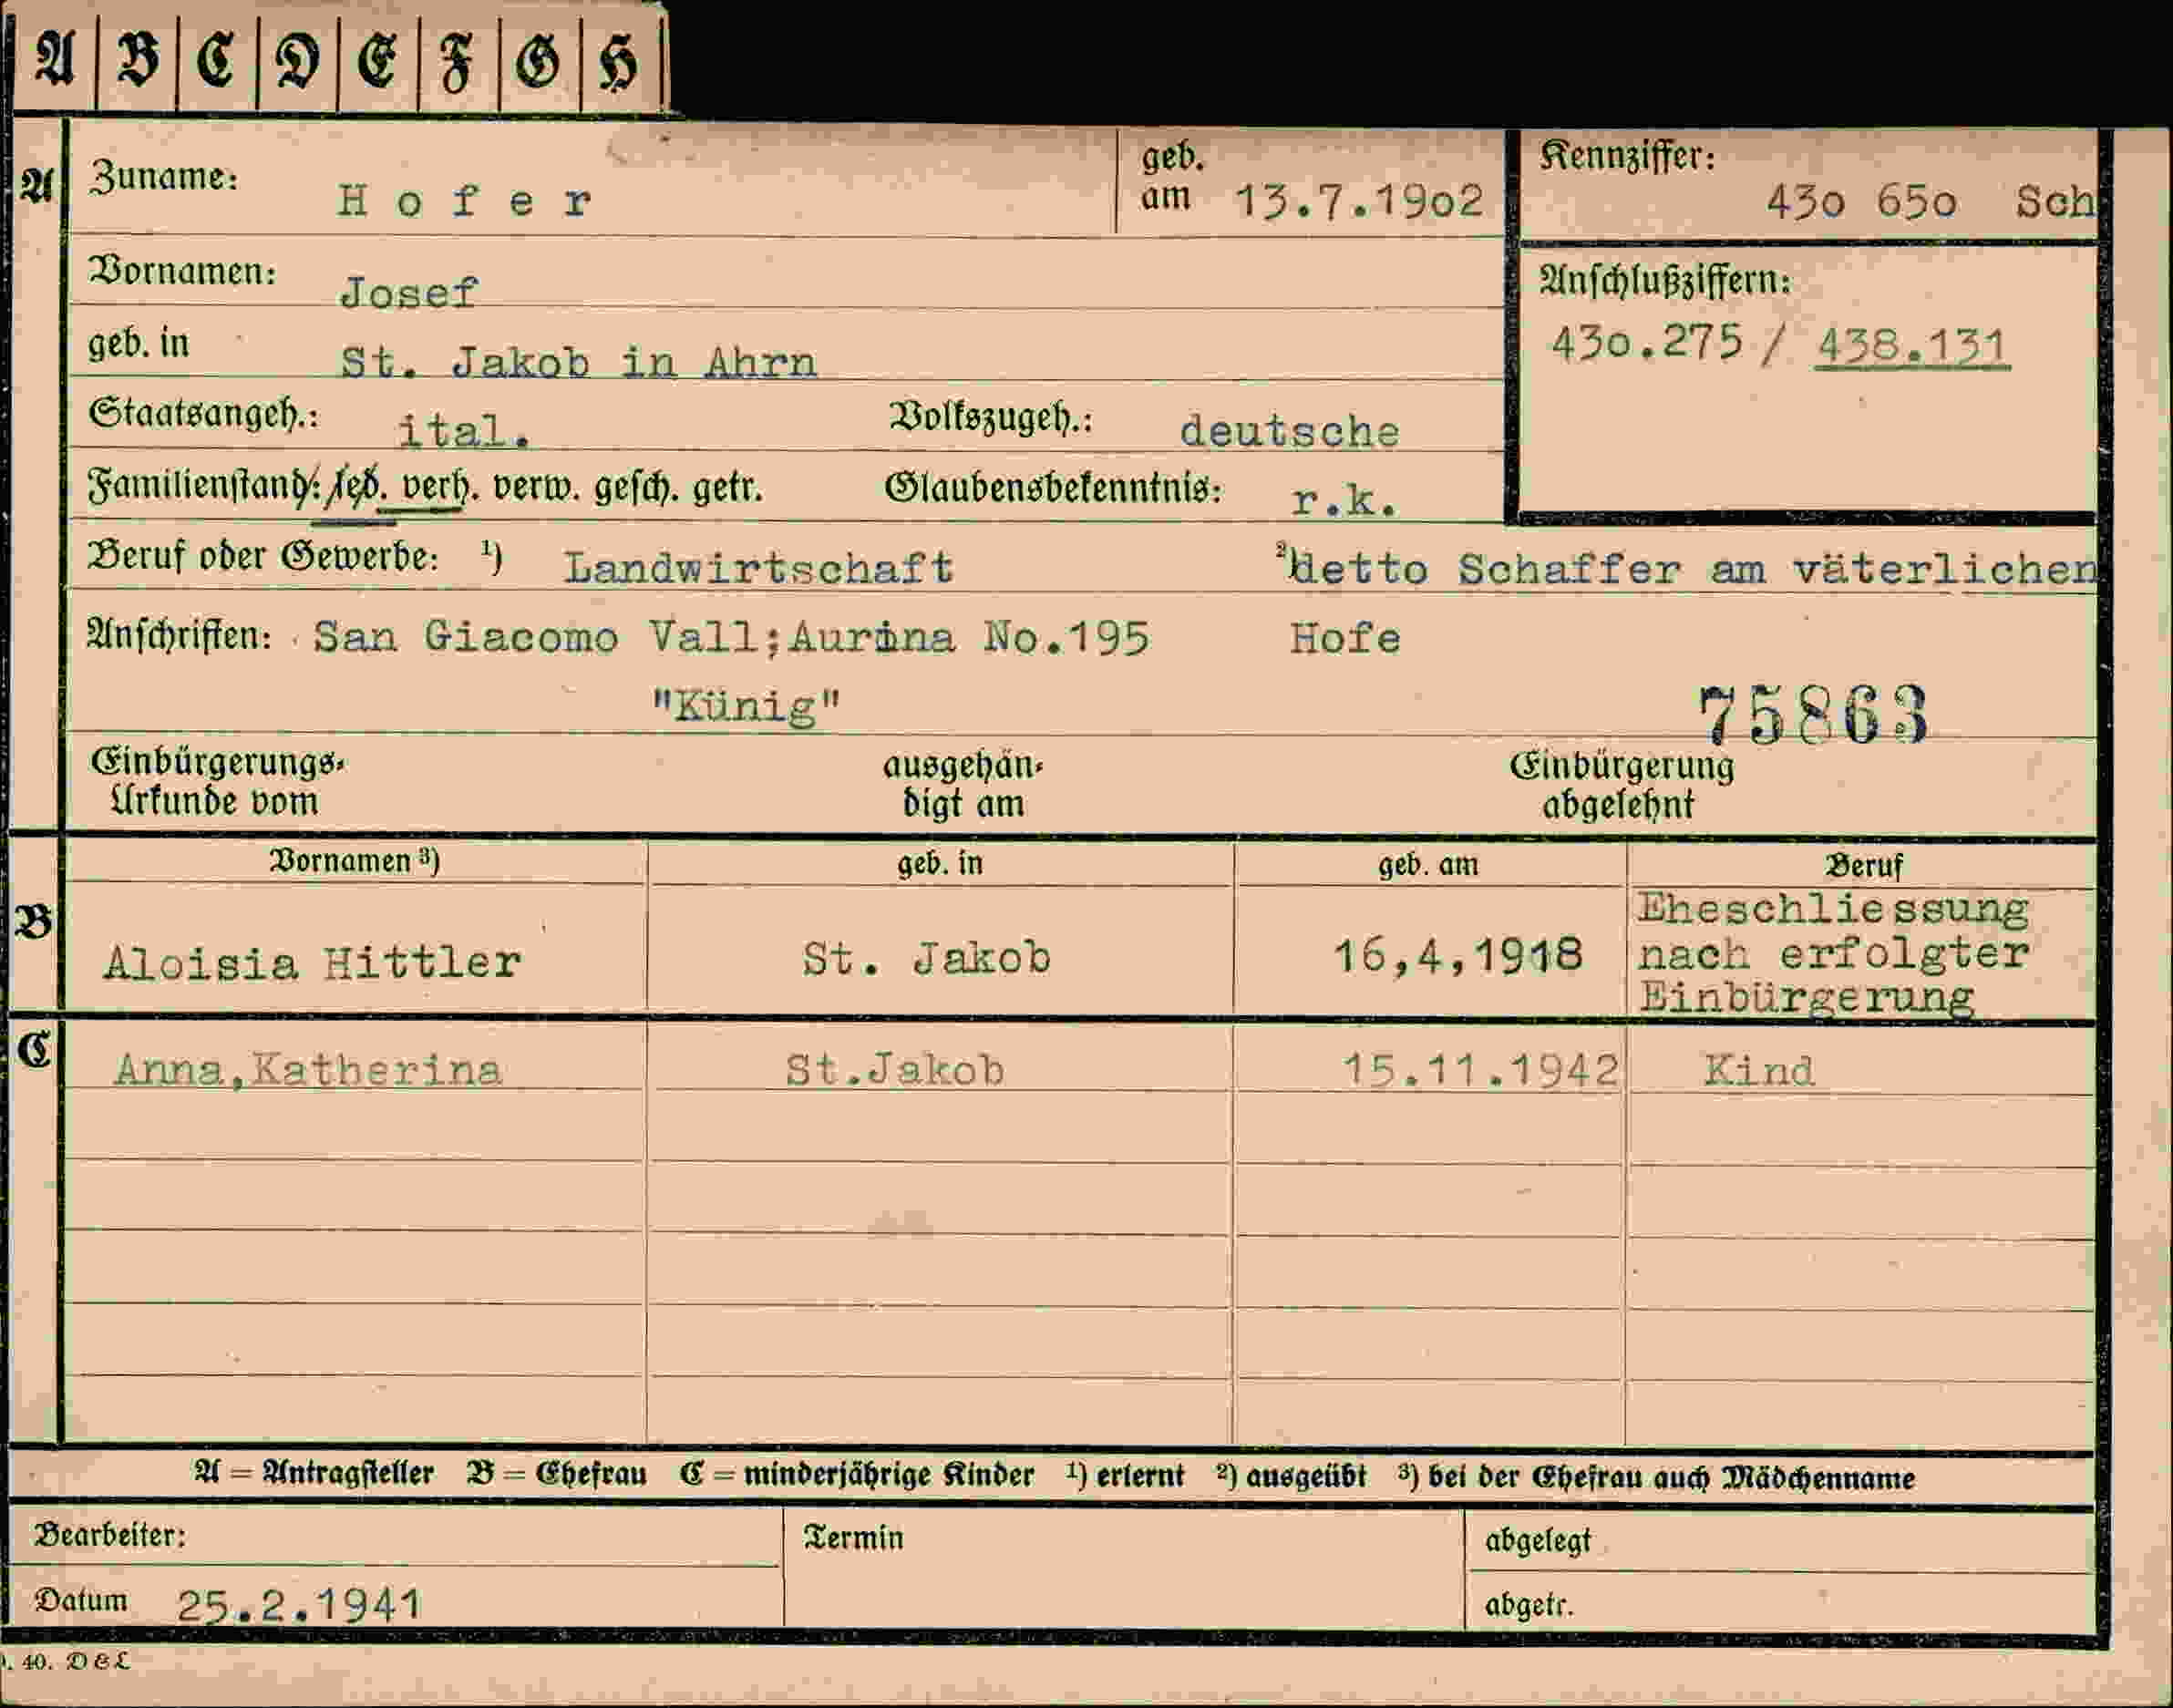 A B C D E F G H
A Zuname: Hofer geb. am 13.7.19o2 Kennziffer: 43o 65o Sch
Vornamen: Josef Anschlußziffern:
geb. in St. Jakob in Ahrn 43o.275 / 438.131
Staatsangeh.: ital. Volkszugeh.: deutsche
Familienstand: led. verh. verw. gesch. getr. Glaubensbekenntnis: r.k.
Beruf oder Gewerbe: ¹) Landwirtschaft ²) detto Schaffer am väterlichen
Anschriften: San Giacomo Vall; Aurina No.195 Hofe
"Künig" 75863
Einbürgerungs- ausgehän- Einbürgerung
Urkunde vom digt am abgelehnt
Vornamen ³) geb. in geb. am Beruf
B Aloisia Hittler St. Jakob 16,4,1918 Eheschliessung
nach erfolgter
Einbürgerung
C Anna,Katherina St.Jakob 15.11.1942 Kind
A = Antragsteller B = Ehefrau C = minderjährige Kinder ¹) erlernt ²) ausgeübt ³) bei der Ehefrau auch Mädchenname
Bearbeiter: Termin abgelegt
Datum 25.2.1941 abgetr.
40. D&L